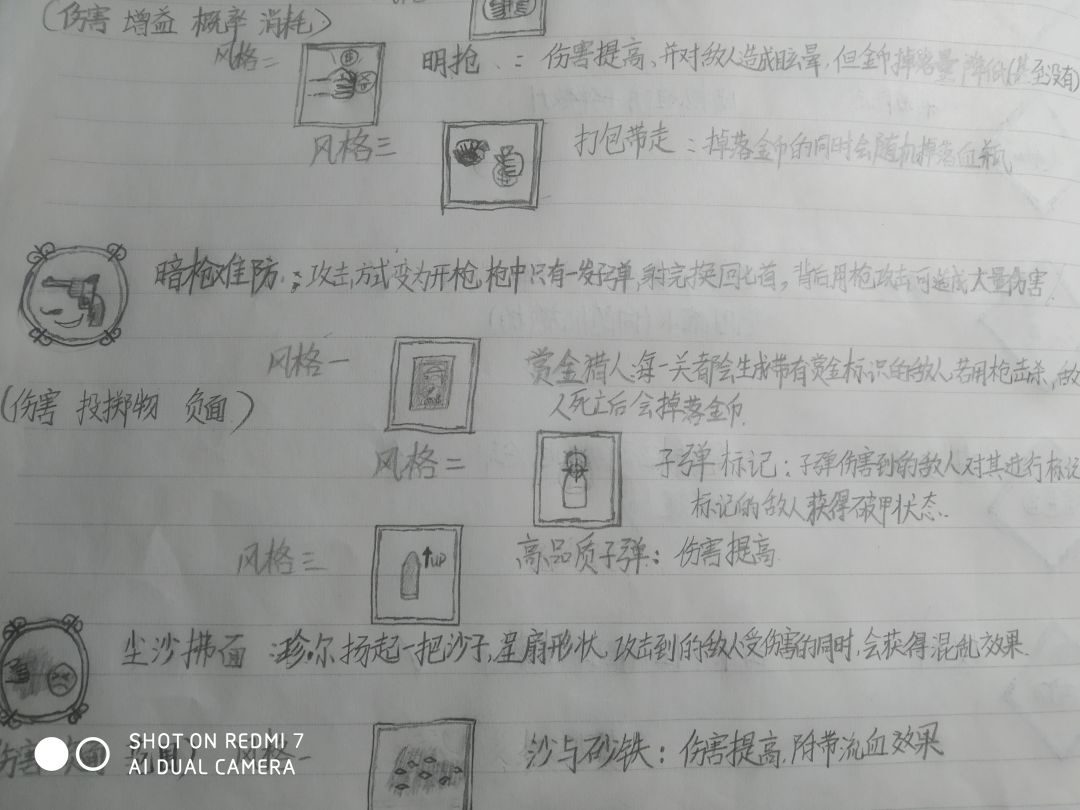 (伤害 增益 概率 消耗)
风格二 明抢 : 伤害提高、并对敌人造成眩晕,但金币掉落量降低(甚至没有)
风格三 打包带走 : 掉落金币的同时会随机掉落血瓶
暗枪难防 : 攻击方式变为开枪,枪中只有一发子弹,射完换回匕首。背后用枪攻击可造成大量伤害.
风格一 赏金猎人:每一关都会生成带有赏金标识的敌人,若用枪击杀,敌
(伤害 投掷物 负面) 人死亡后会掉落金币.
风格二 子弹标记:子弹伤害到的敌人对其进行标记
标记的敌人获得破甲状态.
风格三 UP 高品质子弹: 伤害提高.
尘沙拂面 :珍尔扬起一把沙子,呈扇形状,攻击到的敌人受伤害的同时,会获得混乱效果.
伤害 风格一 沙与砂铁: 伤害提高.附带流血效果
SHOT ON REDMI 7
AI DUAL CAMERA